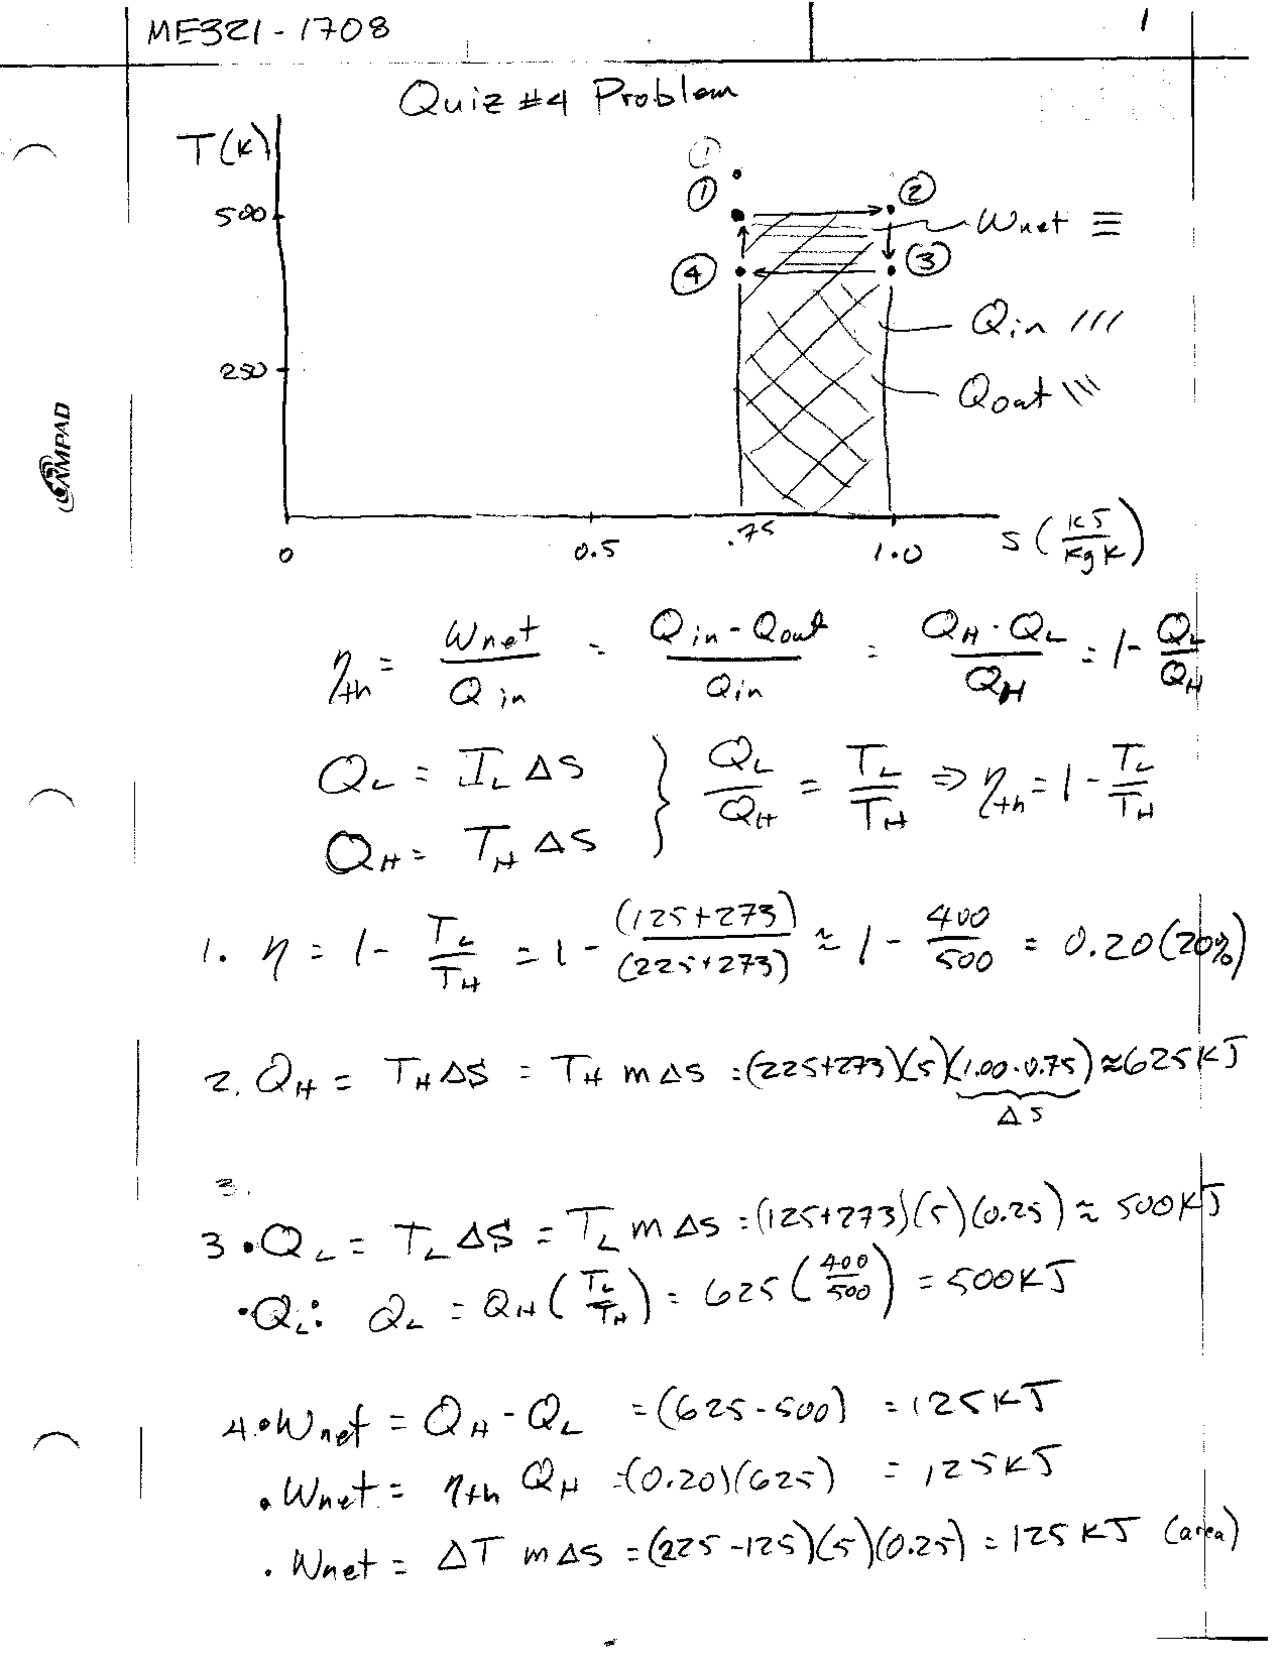 ME321-1708
1
Quiz #4 Problem
T(K)
①
① ②
500
Wnet ≡
④ ③
Qin ///
250
Qout \\\
AMPAD
0 0.5 .75 1.0 s (kJ/kg K)
ηth = Wnet/Qin = (Qin - Qout)/Qin = (QH - QL)/QH = 1 - QL/QH
QL = TL ΔS } QL/QH = TL/TH ⇒ ηth = 1 - TL/TH
QH = TH ΔS
1. η = 1 - TL/TH = 1 - (125+273)/(225+273) ≈ 1 - 400/500 = 0.20 (20%)
2. QH = TH ΔS = TH m Δs = (225+273)(5)(1.00-0.75) ≈ 625 kJ
Δs
3.
3 • QL = TL ΔS = TL m Δs = (125+273)(5)(0.25) ≈ 500 kJ
• QL: QL = QH (TL/TH) = 625 (400/500) = 500 kJ
4. • Wnet = QH - QL = (625-500) = 125 kJ
• Wnet = ηth QH = (0.20)(625) = 125 kJ
• Wnet = ΔT m Δs = (225-125)(5)(0.25) = 125 kJ (area)